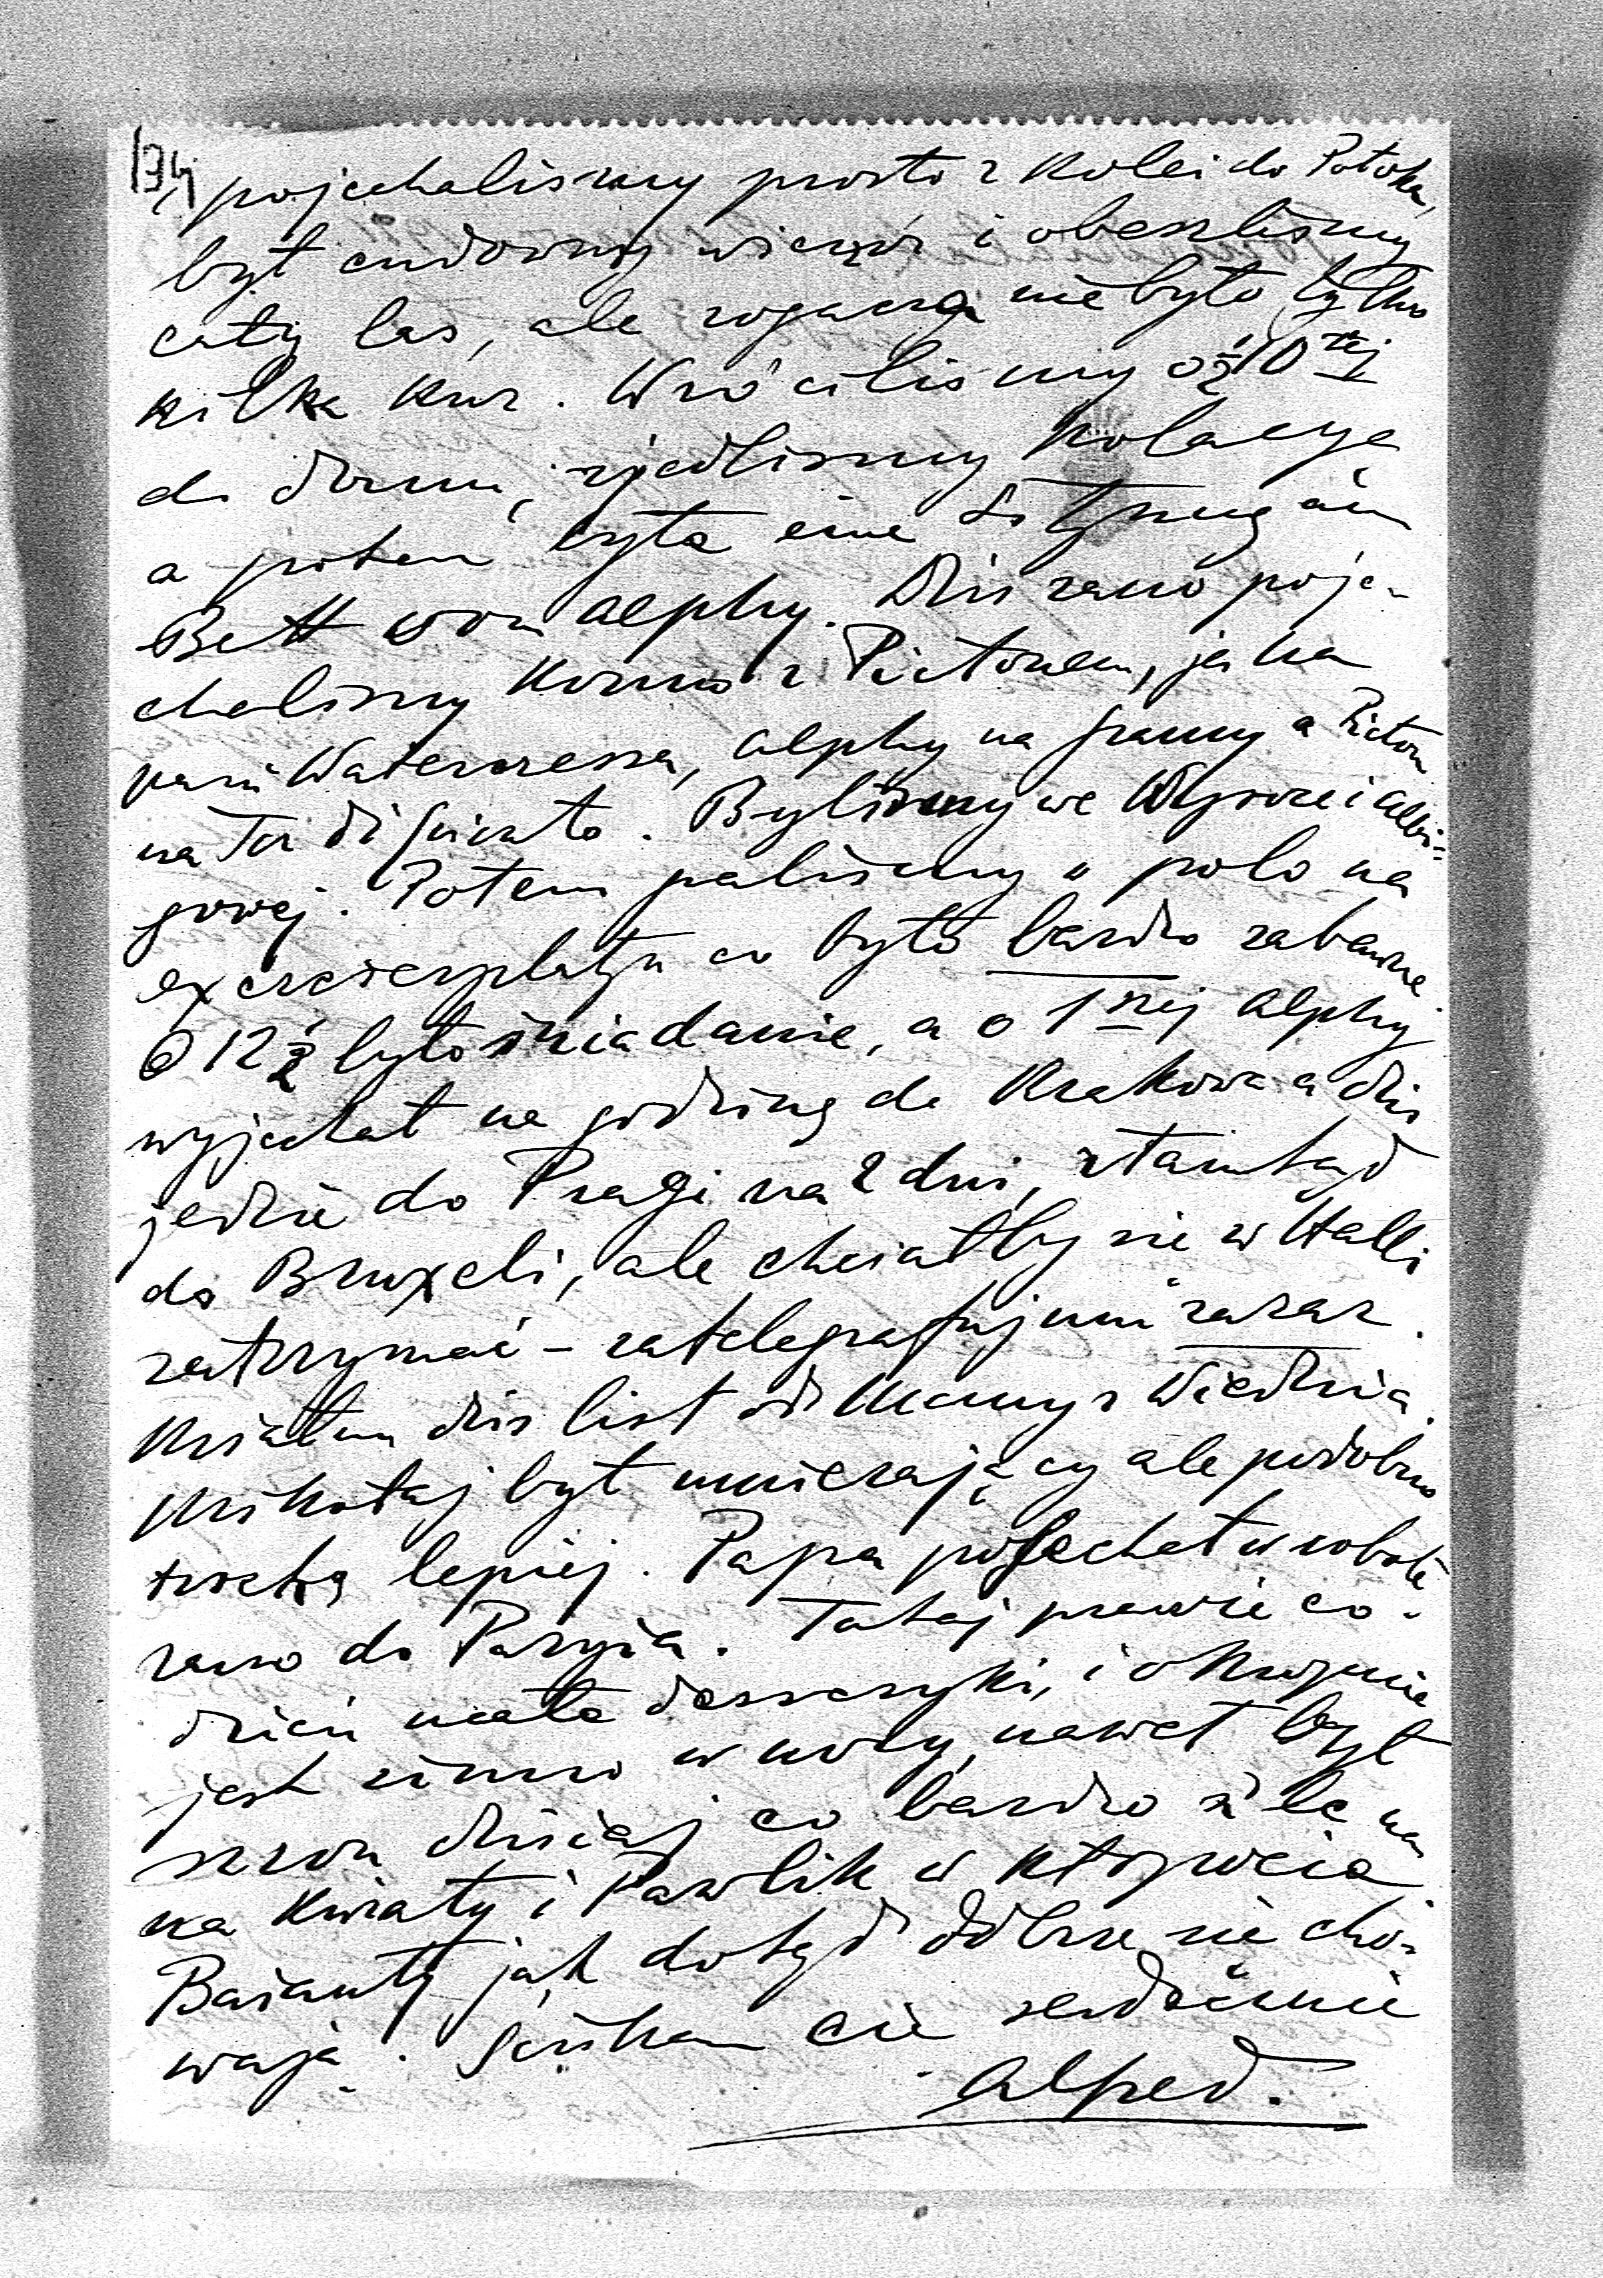 134
i pojechaliśmy prosto z Kolei do Potoka,
był cudowny wieczór i obeszliśmy
cały las, ale rogacza nie było tylko
kilka Kur. Wróciliśmy o ½10 tej
do domu, zjedliśmy Kolacye
a potem była eine Sitzung am
Bett von Alphy. Dziś rano poje-
chaliśmy Konno z Pictonem, ja na
pani Watercressa, Alphy na Framy a Picton
na Tu di Quinto. Byliśmy we Wysokiej Albi=
gowej. Potem graliśmy w polo na
exercierplatzu co było bardzo zabawne.
O 12½ było śniadanie, a o 1 szej Alphy
wyjechał na godzinę do Krakowa a dziś
jedzie do Pragi na 2 dni, ztamtąd
do Bruxeli, ale chciałby się w Halli
zatrzymać – zatelegrafuj mu zaraz.
Miałem dziś list od Mamy z Wiednia.
Mikołaj był umierający ale podobno
trochę lepiej. Papa pojechał w sobotę
rano do Paryża. Tutaj prawie co-
dzień małe deszczyki, i okropnie
jest zimno w nocy, nawet był
szron dzisiaj co bardzo źle
na Kwiaty i Pawlik w Kłopocie.
Bażanty jak dotąd dobrze się cho-
wają. Ściskam Cię serdecznie
Alfred.